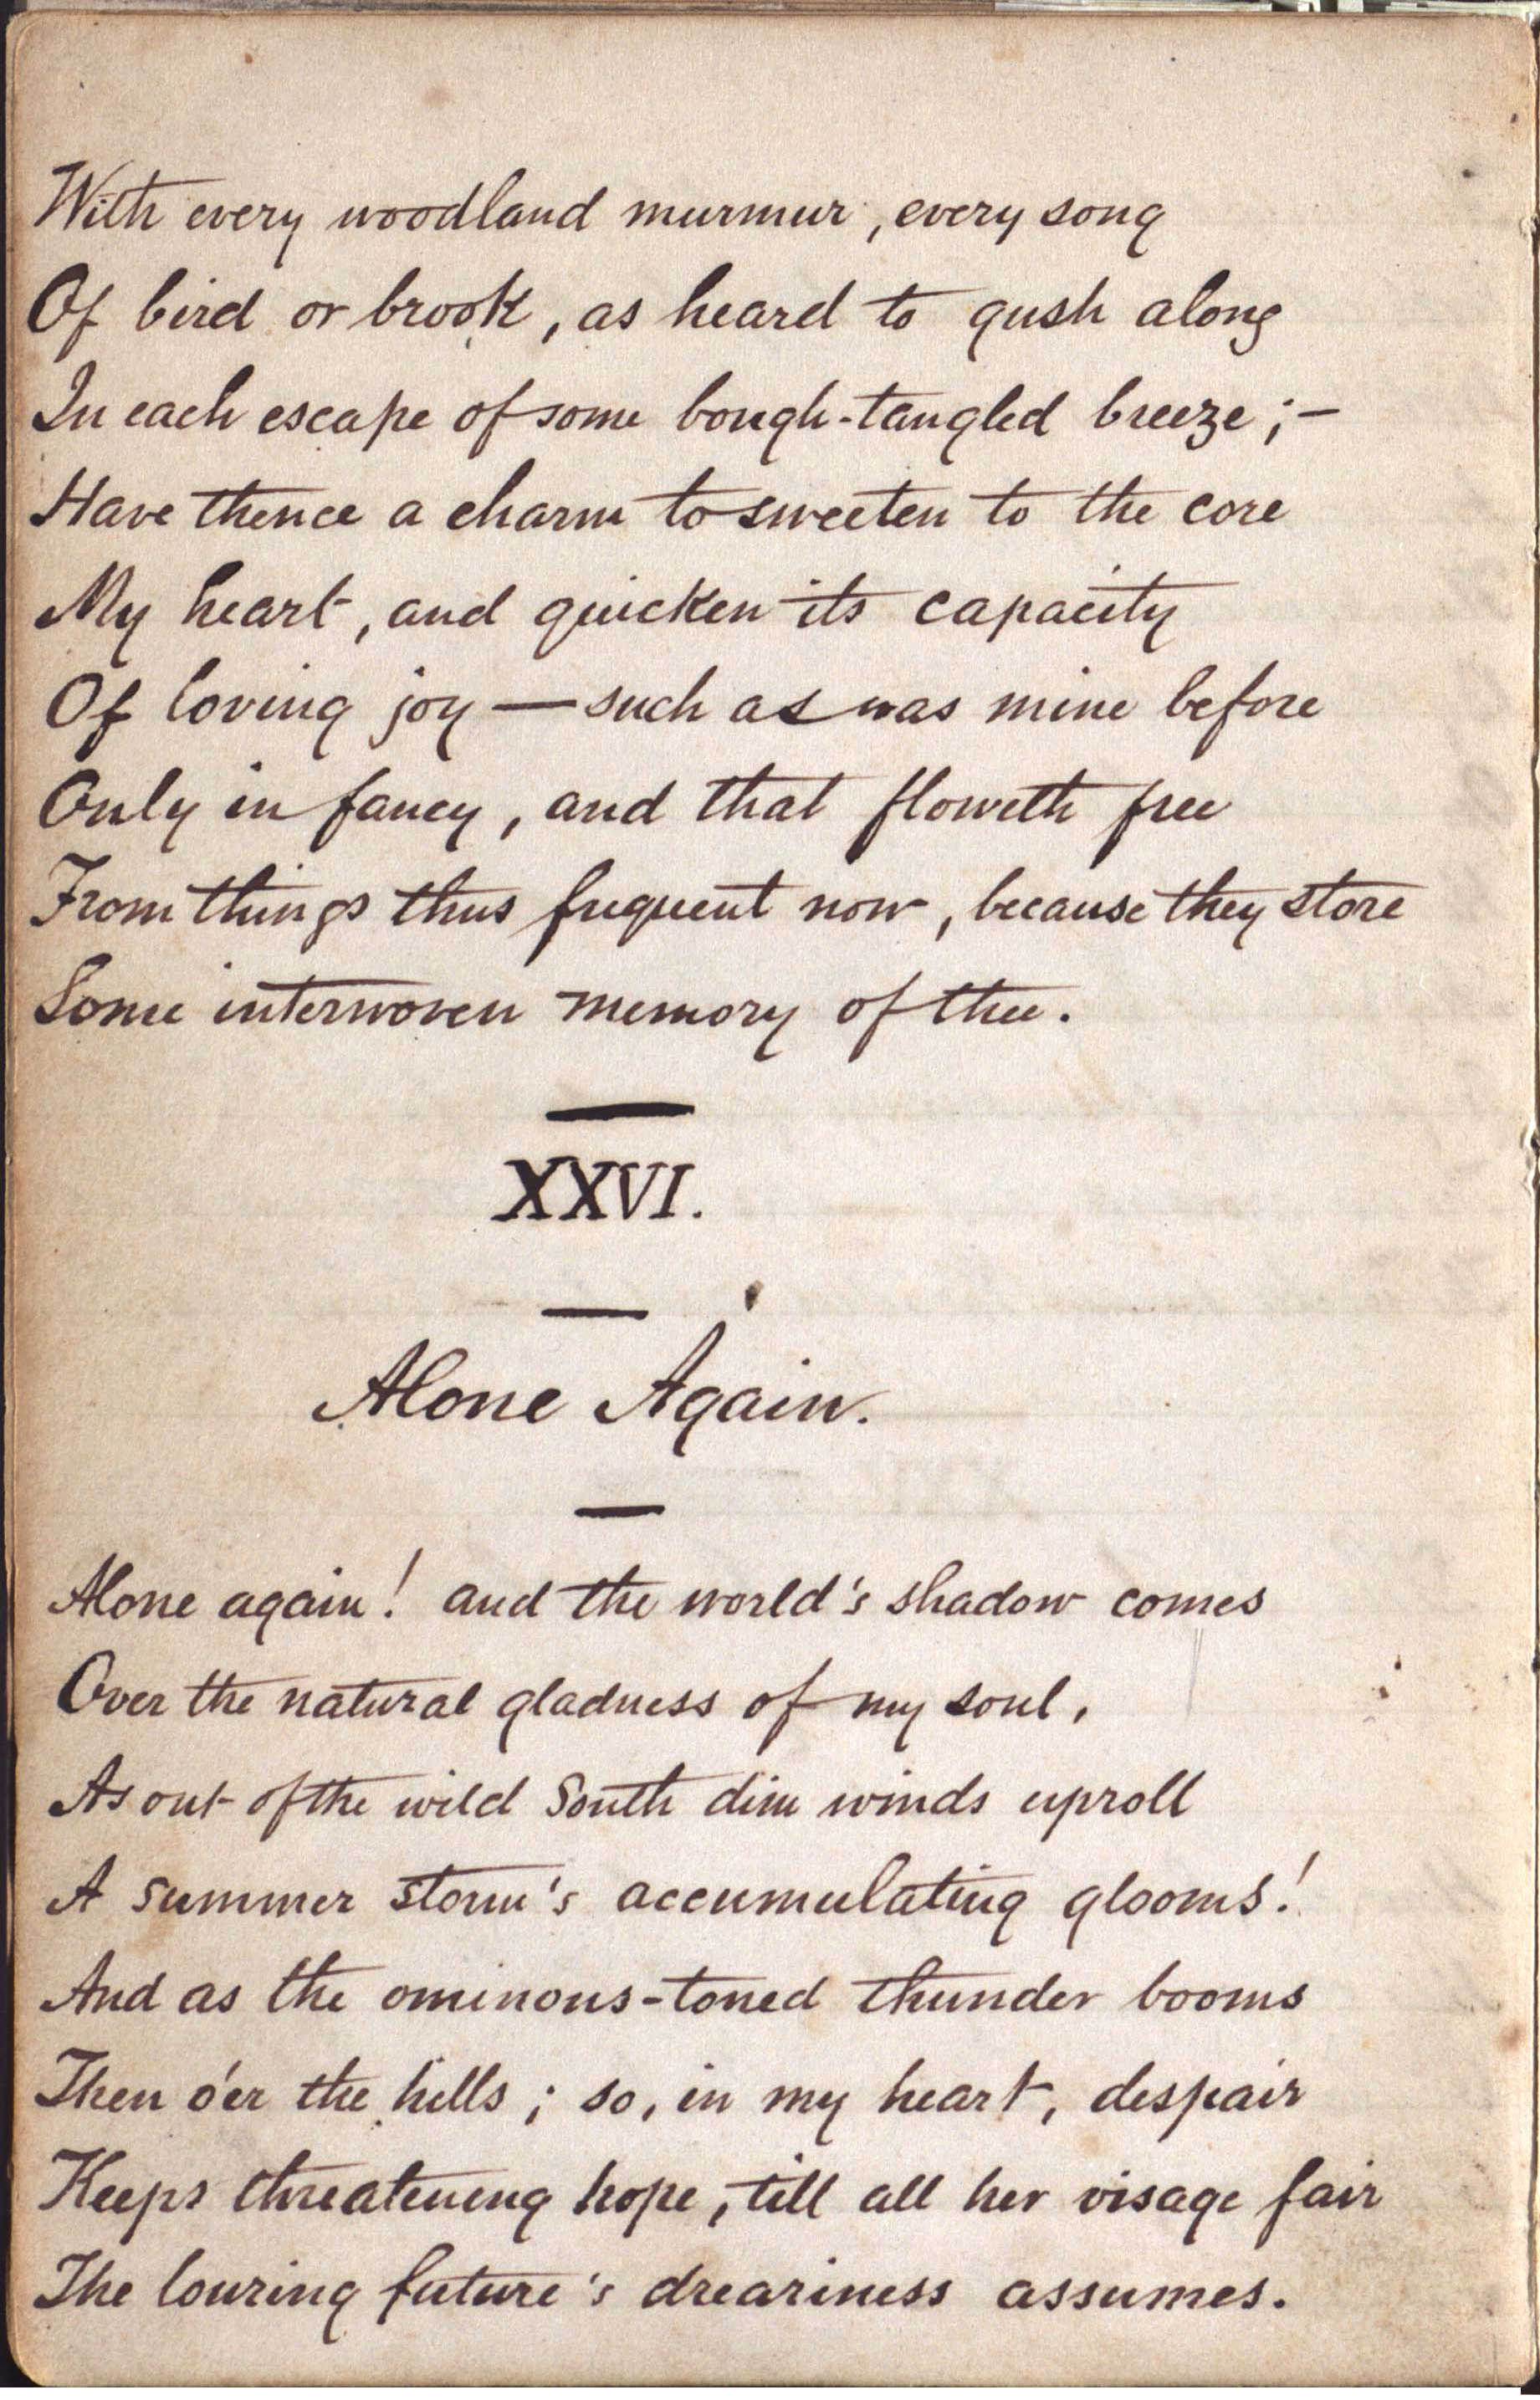 With every woodland murmur, every song
Of bird or brook, as heard to gush along
In each escape of some bough-tangled breeze;—
Have thence a charm to sweeten to the core
My heart, and quicken its capacity
Of loving joy — such as was mine before
Only in fancy, and that floweth free
From things thus frequent now, because they store
Some interwoven memory of thee.
XXVI.
Alone Again.
Alone again! and the world's shadow comes
Over the natural gladness of my soul,
As out of the wild South dim winds uproll
A summer storm's accumulating glooms!
And as the ominous-toned thunder booms
Then o'er the hills; so, in my heart, despair
Keeps threatening hope, till all her visage fair
The louring future's dreariness assumes.